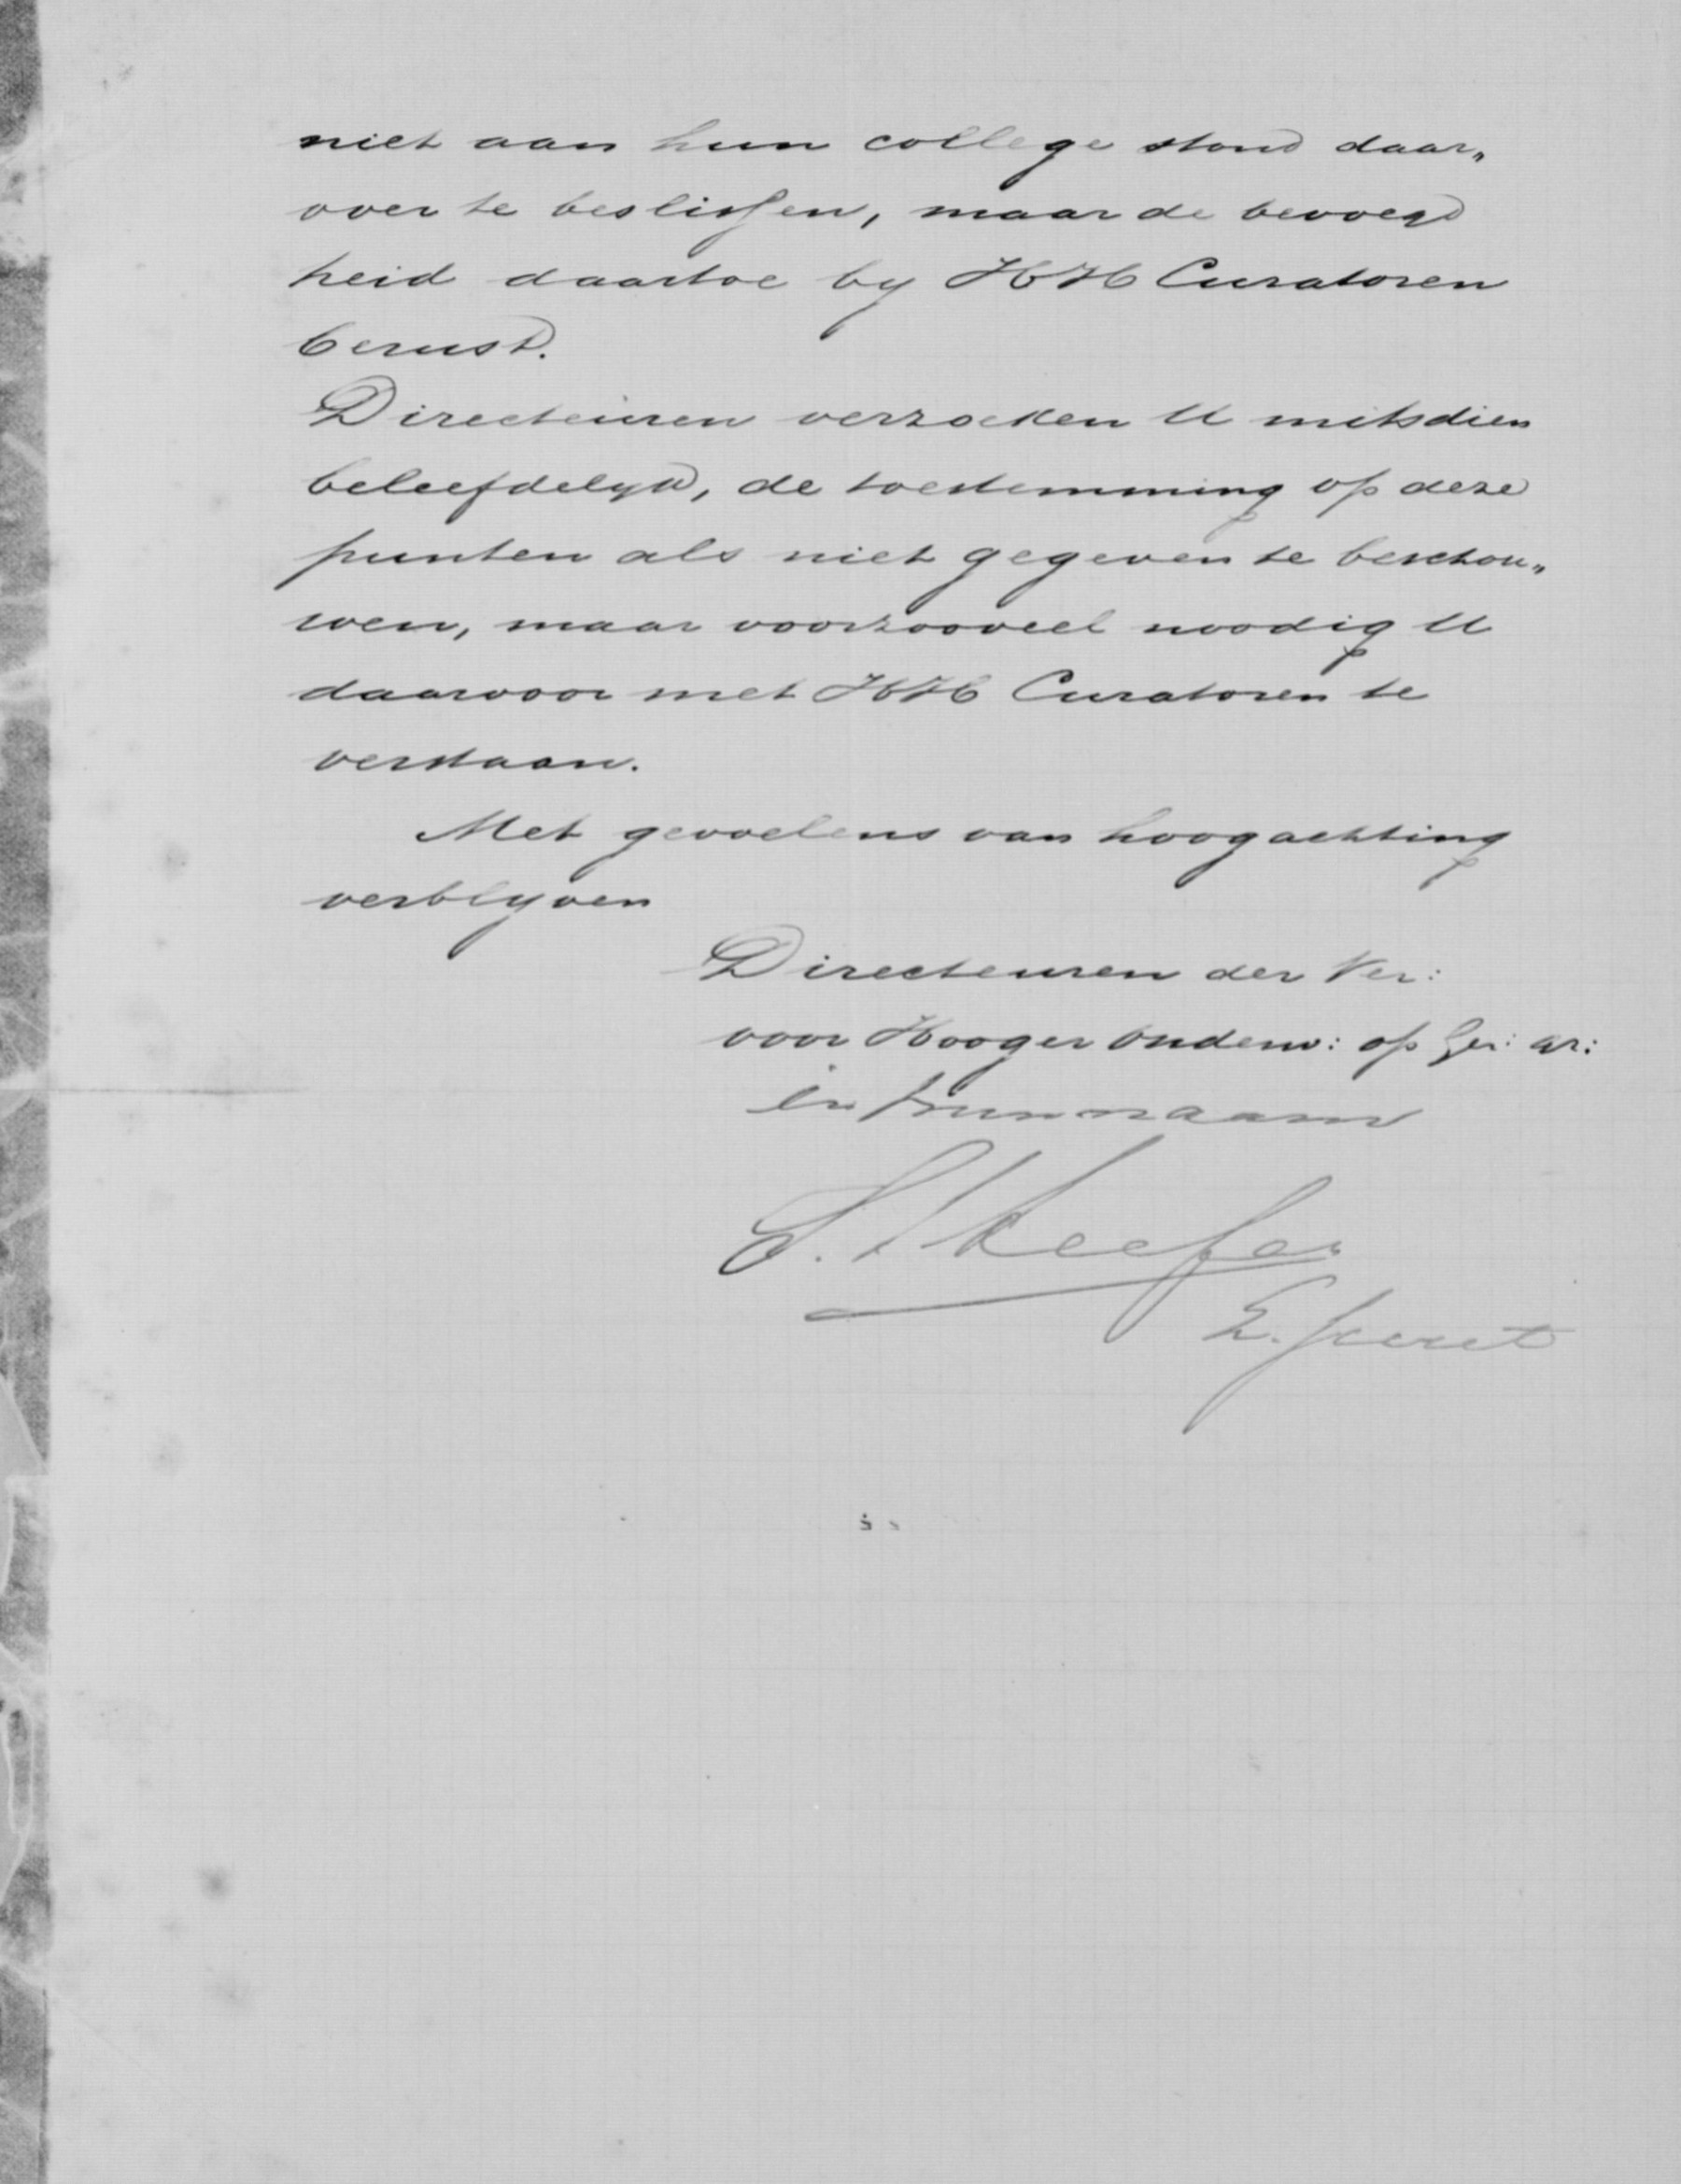 niet aan hun college stond daar„
over te beslissen, maar de bevoegd
heid daartoe by HH Curatoren
berust.
Directeuren verzoeken U mitsdien
beleefdelyk, de toestemming op deze
punten als niet gegeven te beschou„
wen, maar voorzooveel noodig U
daarvoor met HH Curatoren te
verstaan.
Met gevoelens van hoogachting
verblyven
Directeuren der Ver:
voor Hooger Onderw: op Ger: Gr:
in hun naam